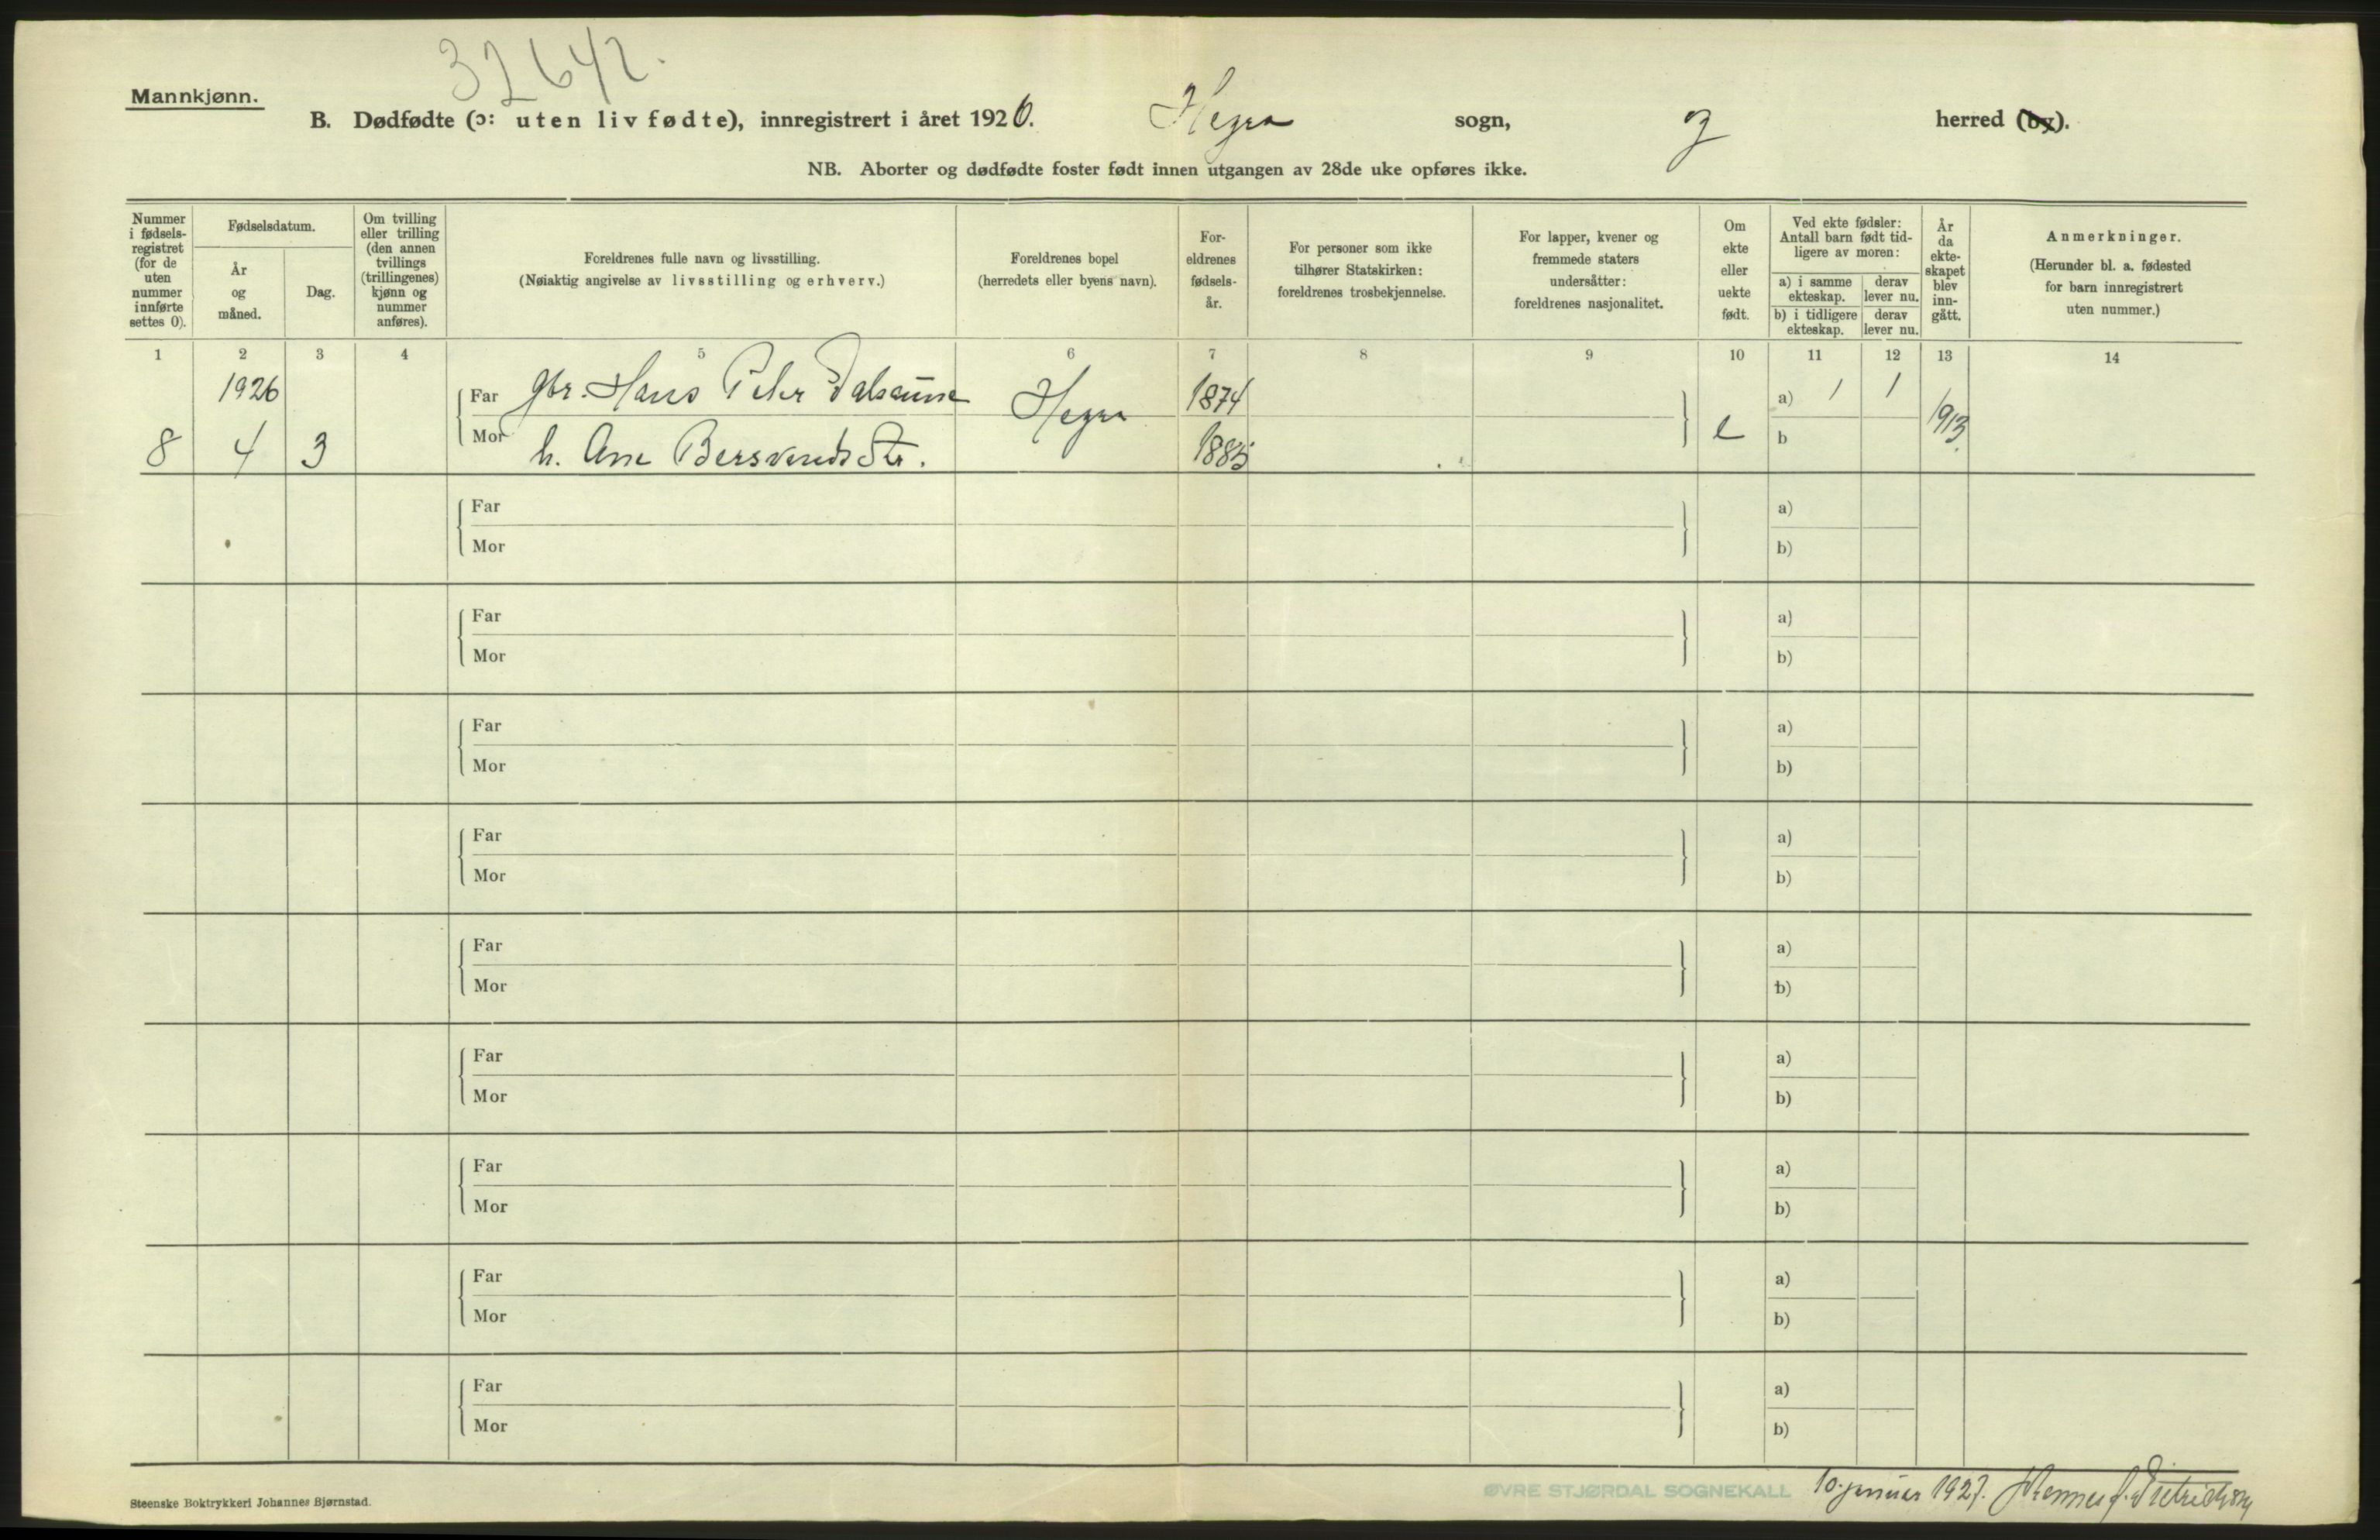 32642.
Mannkjønn.
B. Dødfødte (ɔ: uten liv fødte), innregistrert i året 1926. Hegra sogn, og herred (by).
NB. Aborter og dødfødte foster født innen utgangen av 28de uke opføres ikke.
Nummer i fødsels-registret (for de uten nummer innførte settes 0).
Fødselsdatum.
År og måned.
Dag.
Om tvilling eller trilling (den annen tvillings (trillingenes) kjønn og nummer anføres).
Foreldrenes fulle navn og livsstilling.
(Nøiaktig angivelse av livsstilling og erhverv.)
Foreldrenes bopel
(herredets eller byens navn).
For-eldrenes fødsels-år.
For personer som ikke tilhører Statskirken: foreldrenes trosbekjennelse.
For lapper, kvener og fremmede staters undersåtter: foreldrenes nasjonalitet.
Om ekte eller uekte født.
Ved ekte fødsler: Antall barn født tid-ligere av moren:
a) i samme ekteskap.
derav lever nu.
b) i tidligere ekteskap.
derav lever nu.
År da ekte-skapet blev inn-gått.
Anmerkninger.
(Herunder bl. a. fødested for barn innregistrert uten nummer.)
1 2 3 4 5 6 7 8 9 10 11 12 13 14
1926 Far Gbr. Hans Peter Hegra 1874 a) 1 1 1913
8 4 3 Mor h. Ane Bersvendsdtr. 1885 e b
Far a)
Mor b)
Far a)
Mor b)
Far a)
Mor b)
Far a)
Mor b)
Far a)
Mor b)
Far a)
Mor b)
Far a)
Mor b)
Far a)
Mor b)
Far a)
Mor b)
Steenske Boktrykkeri Johannes Bjørnstad.
ØVRE STJØRDAL SOGNEKALL 10. januar 1927. Dietrichson